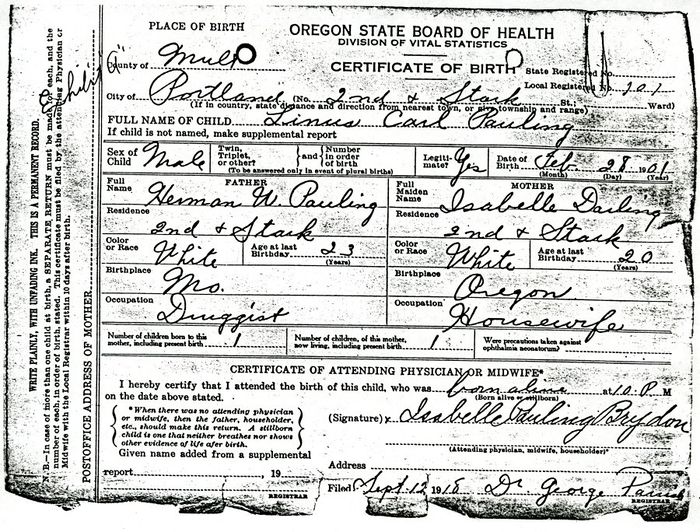 PLACE OF BIRTH
OREGON STATE BOARD OF HEALTH
DIVISION OF VITAL STATISTICS
CERTIFICATE OF BIRTH
County of Mult
State Registered No.
Local Registered No. 701
City of Portland (No. 2nd & Stark St., Ward)
(If in country, state distance and direction from nearest town, or give township and range)
FULL NAME OF CHILD Linus Carl Pauling
If child is not named, make supplemental report
Sex of Child Male
Twin, Triplet, or other? and Number in order of birth
(To be answered only in event of plural births)
Legitimate? Yes
Date of Birth Feb. 28 1901
(Month) (Day) (Year)
FATHER
Full Name Herman W. Pauling
Residence 2nd & Stark
Color or Race White
Age at last Birthday 23
(Years)
Birthplace Mo.
Occupation Druggist
MOTHER
Full Maiden Name Isabelle Darling
Residence 2nd & Stark
Color or Race White
Age at last Birthday 20
(Years)
Birthplace Oregon
Occupation Housewife
Number of children born to this mother, including present birth 1
Number of children, of this mother, now living, including present birth 1
Were precautions taken against ophthalmia neonatorum?
CERTIFICATE OF ATTENDING PHYSICIAN OR MIDWIFE*
I hereby certify that I attended the birth of this child, who was born alive at 10. P M
(Born alive or stillborn)
on the date above stated.
*When there was no attending physician
or midwife, then the father, householder,
etc., should make this return. A stillborn
child is one that neither breathes nor shows
other evidence of life after birth.
(Signature) x Isabelle Pauling Brydon
(Attending physician, midwife, householder)*
Given name added from a supplemental
report 19
REGISTRAR
Address
Filed Sept. 12 1918 Dr George
REGISTRAR
WRITE PLAINLY, WITH UNFADING INK. THIS IS A PERMANENT RECORD.
N.B.—In case of more than one child at birth, a SEPARATE RETURN must be made for each, and the
number of each, in order of birth, stated. This certificate must be filed by the attending Physician or
Midwife with the Local Registrar within 10 days after birth.
POSTOFFICE ADDRESS OF MOTHER